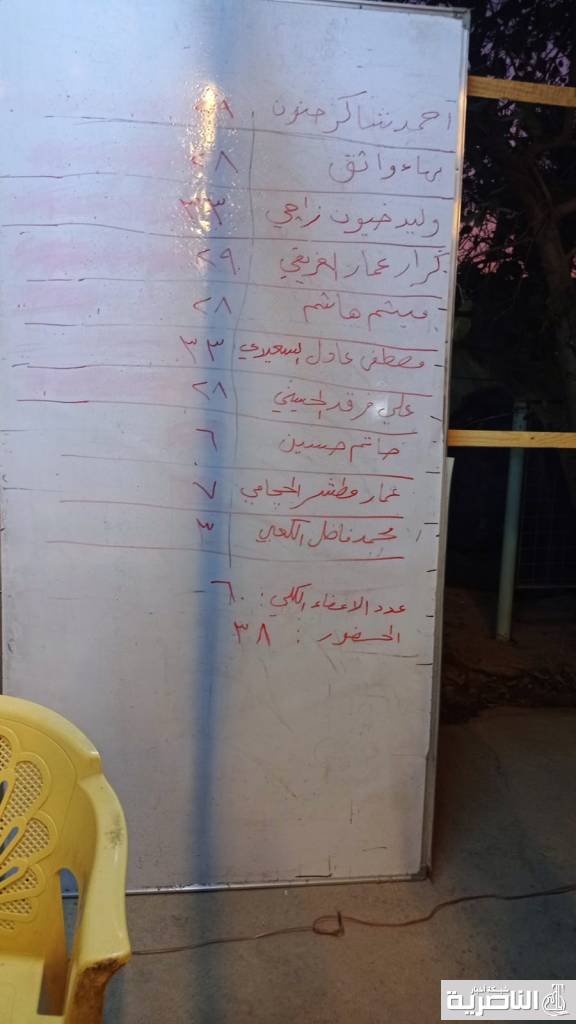 احمد شاكر حنون ٢٩
بهاء واثق ٢٨
وليد خيون زامي ٣٣
كرار عمار الغريقي ٢٩
ميثم هاشم ٢٨
مصطفى عادل السعيدي ٣٣
علي فرقد الحسيني ٢٨
حاتم حسين ٦
عمار مطشر الحجامي ٧
محمد فاضل الكعبي ٣
عدد الاعضاء الكلي : ٦٠
الحضور : ٣٨
شبكة أخبار
الناصرية